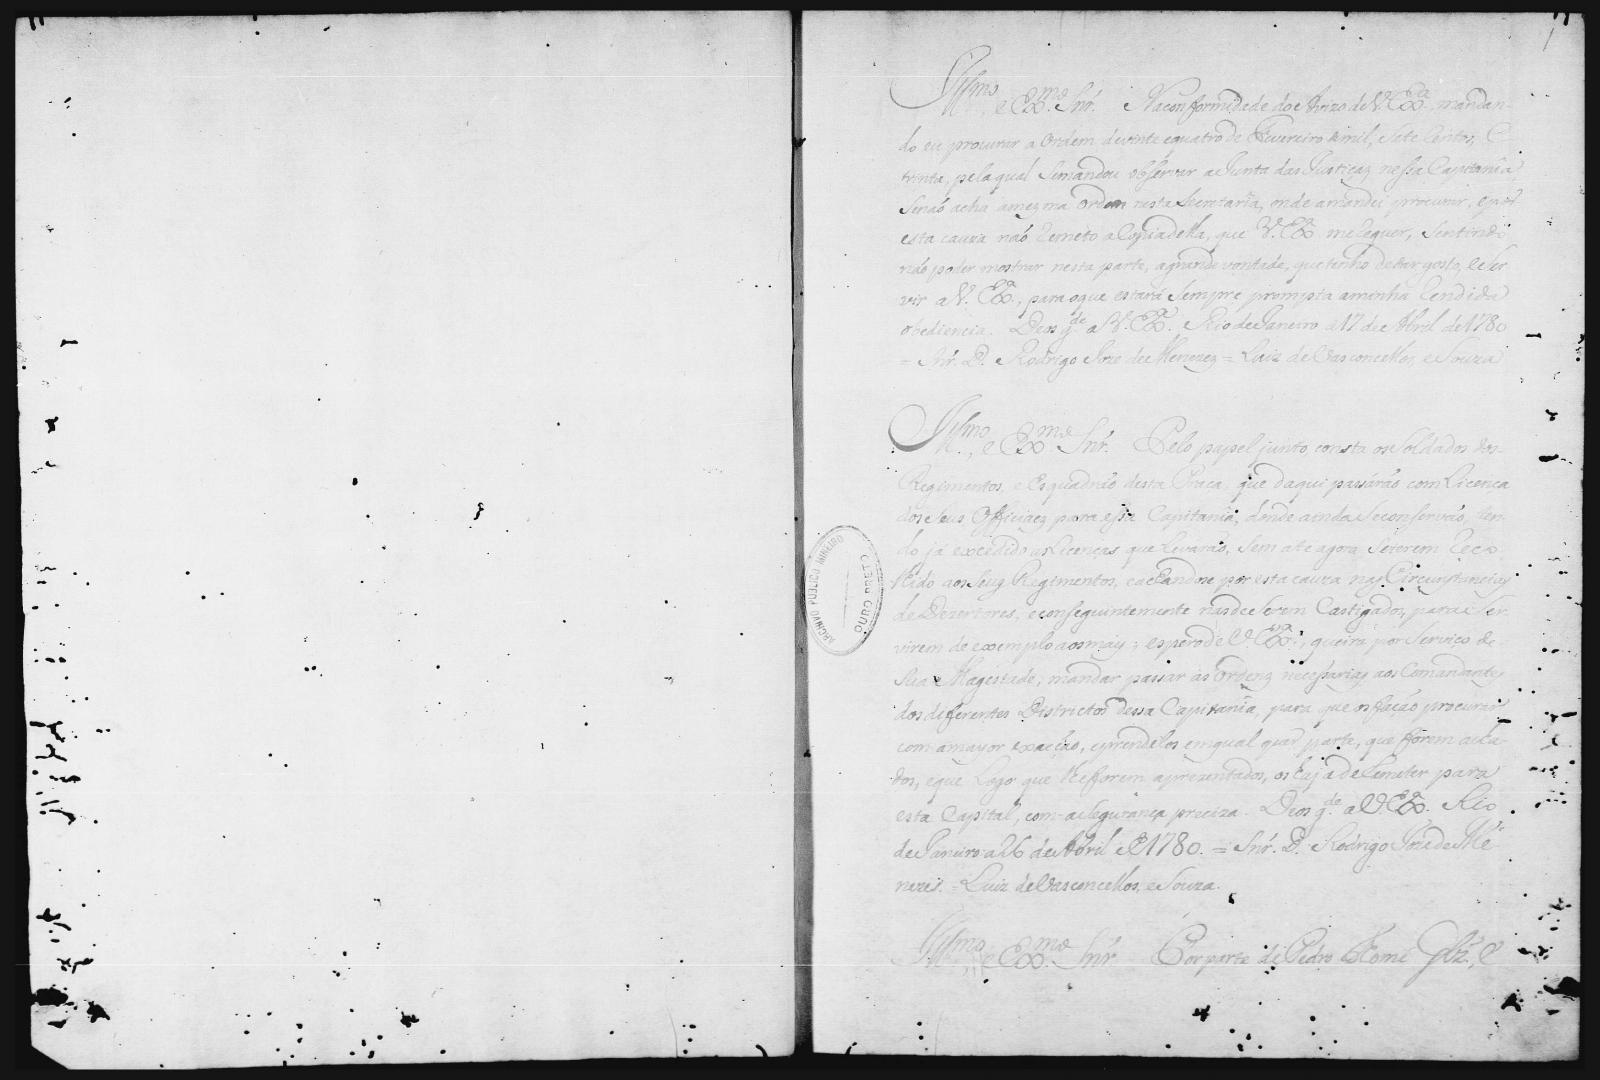 1
Illmo
e Exmo. Snr. Na conformidade do Avizo de V. Exa., mandan-
do eu procurar a Ordem de vinte e quatro de Fevereiro de mil, Sete Centos, e
trinta, pela qual Semandou observar a Junta das Justiças nessa Capitania,
Senaõ acha amezma Ordem nesta Secretaria, onde amandei procurar, epor
esta cauza naõ Remeto a Copia della, que V. Exa me Requer, Sentindo
naõ poder mostrar nesta parte, agrande vontade, quetenho dedar gosto, e Ser
vir a V. Exa., para oque estará Sempre prompta aminha Rendida
obediencia. Deos gde a V. Exa. Rio de Janeiro a 17 de Abril de 1780
= Snr. D. Rodrigo Joze de Menezes = Luiz de Vasconcellos, e Souza
Illmo., e Exmo. Snr. Pelo papel junto consta os Soldados dos
Regimentos, e Esquadraõ desta Praca, que daqui passáraõ com Licença
dos Seus Officiaes para essa Capitania, donde ainda Seconservaõ, ten-
do já excedido as Licenças que Leváraõ, Sem ate agora Seterem Reco
lhido aos Seus Regimentos, eachandose por esta cauza nas Circunstancias
de Dezertores, econseguintemente nasde Serem Castigados, para Ser
virem de exemplo aosmais; espero de V. Exa., queira por Servico de
Sua Magestade, mandar passar as Ordens necessarias aos Comandantes
dos diferentes Districtos dessa Capitania, para que os façaõ procurar
com amayor exacçaõ, eprendelos emqual quer parte, que fforem acha-
dos, eque Logo que lhe fforem aprezentados, os haja de Remeter para
esta Capital, com aSegurança preciza. Deos gde. a V. Exa. Rio
de Janeiro a 26 de Abril de 1780. = Snr. D. Rodrigo Joze de Me-
nezes. = Luiz de Vasconcellos, e Souza.
Illmo., e Exmo. Snr Por parte de Pedro Thomé Glz., e
ARCHIVO PUBLICO MINEIRO
OURO PRETO